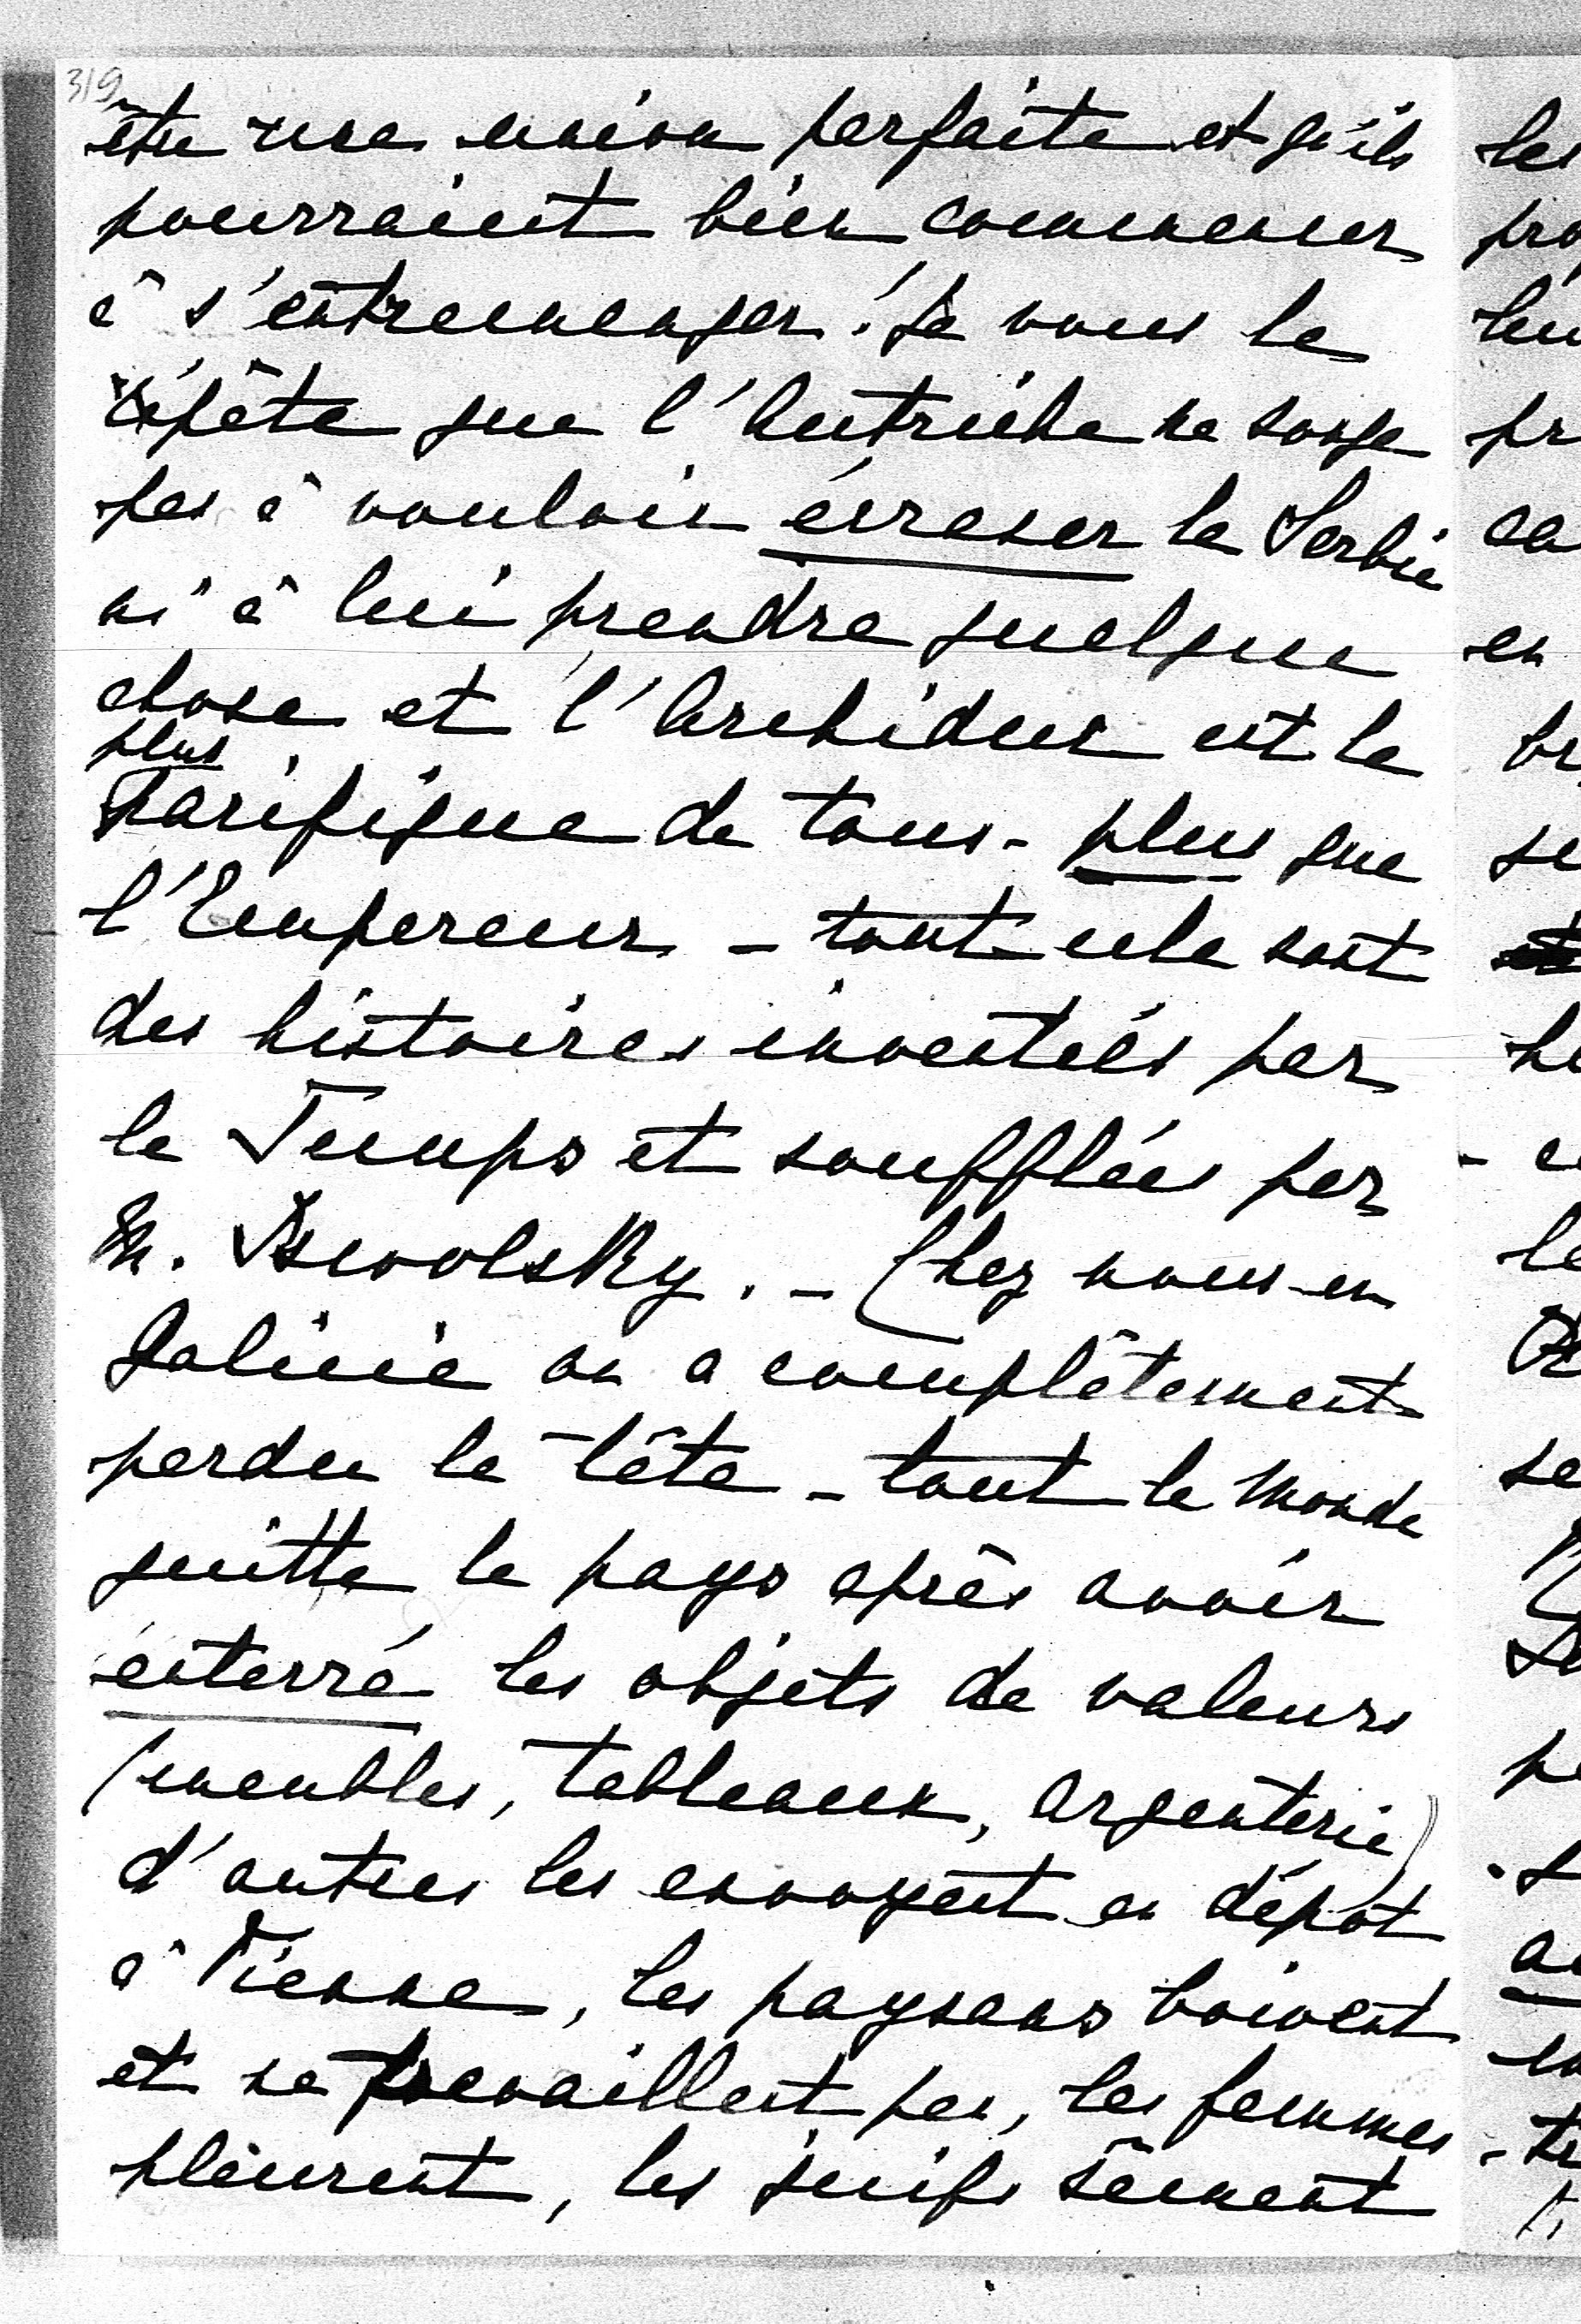 319
être une union parfaite et qu'ils
pourraient bien commencer
à s'entremanger! Je vous le
répète que l'Autriche ne songe
pas à vouloir écraser la Serbie
ni à lui prendre quelque
chose et l'Archiduc est le
plus
pacifique de tous - plus que
l'Empereur - tout cela sont
des histoires inventées par
le Temps et soufflées par
M. Iswolsky. - Chez nous en
Galicie on a complètement
perdu la tête - tout le monde
quitte le pays après avoir
enterré les objets de valeurs
(meubles, tableaux, argenterie)
d'autres les envoyent en dépôt
à Vienne, les paysans boivent
et ne travaillent pas, les femmes
pleurent, les juifs sèment